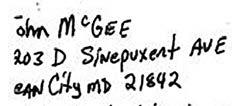 John McGEE
203 D Sinepuxent AVE
EAN City MD 21842